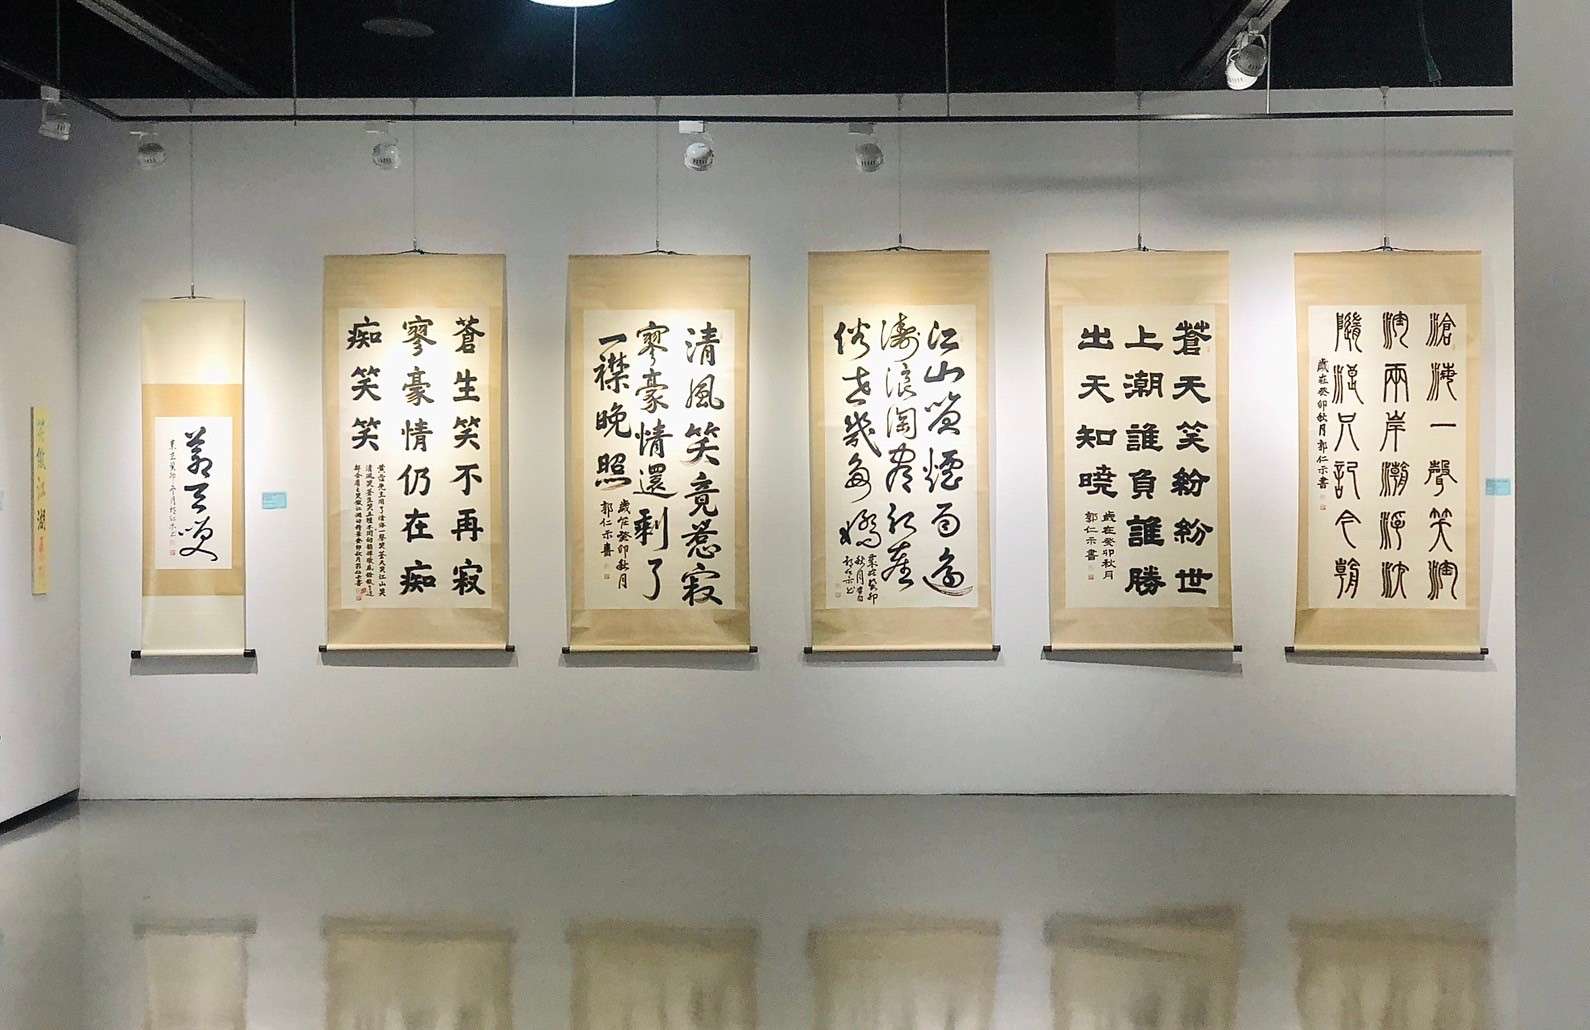 滄海一聲笑滔
滔兩岸潮浮沈
隨浪只記今朝
歲在癸卯秋月郭仁示書
蒼天笑紛紛世
上潮誰負誰勝
出天知曉
歲在癸卯秋月
郭仁示書
江山笑煙雨遙
濤浪淘盡紅塵
俗世幾多嬌
清風笑竟惹寂
寥豪情還剩了
一襟晚照
歲在癸卯秋月
郭仁示書
蒼生笑不再寂
寥豪情仍在痴
痴笑笑
滄海一聲笑蒼天笑江山笑
清風笑蒼生笑
笑傲江湖